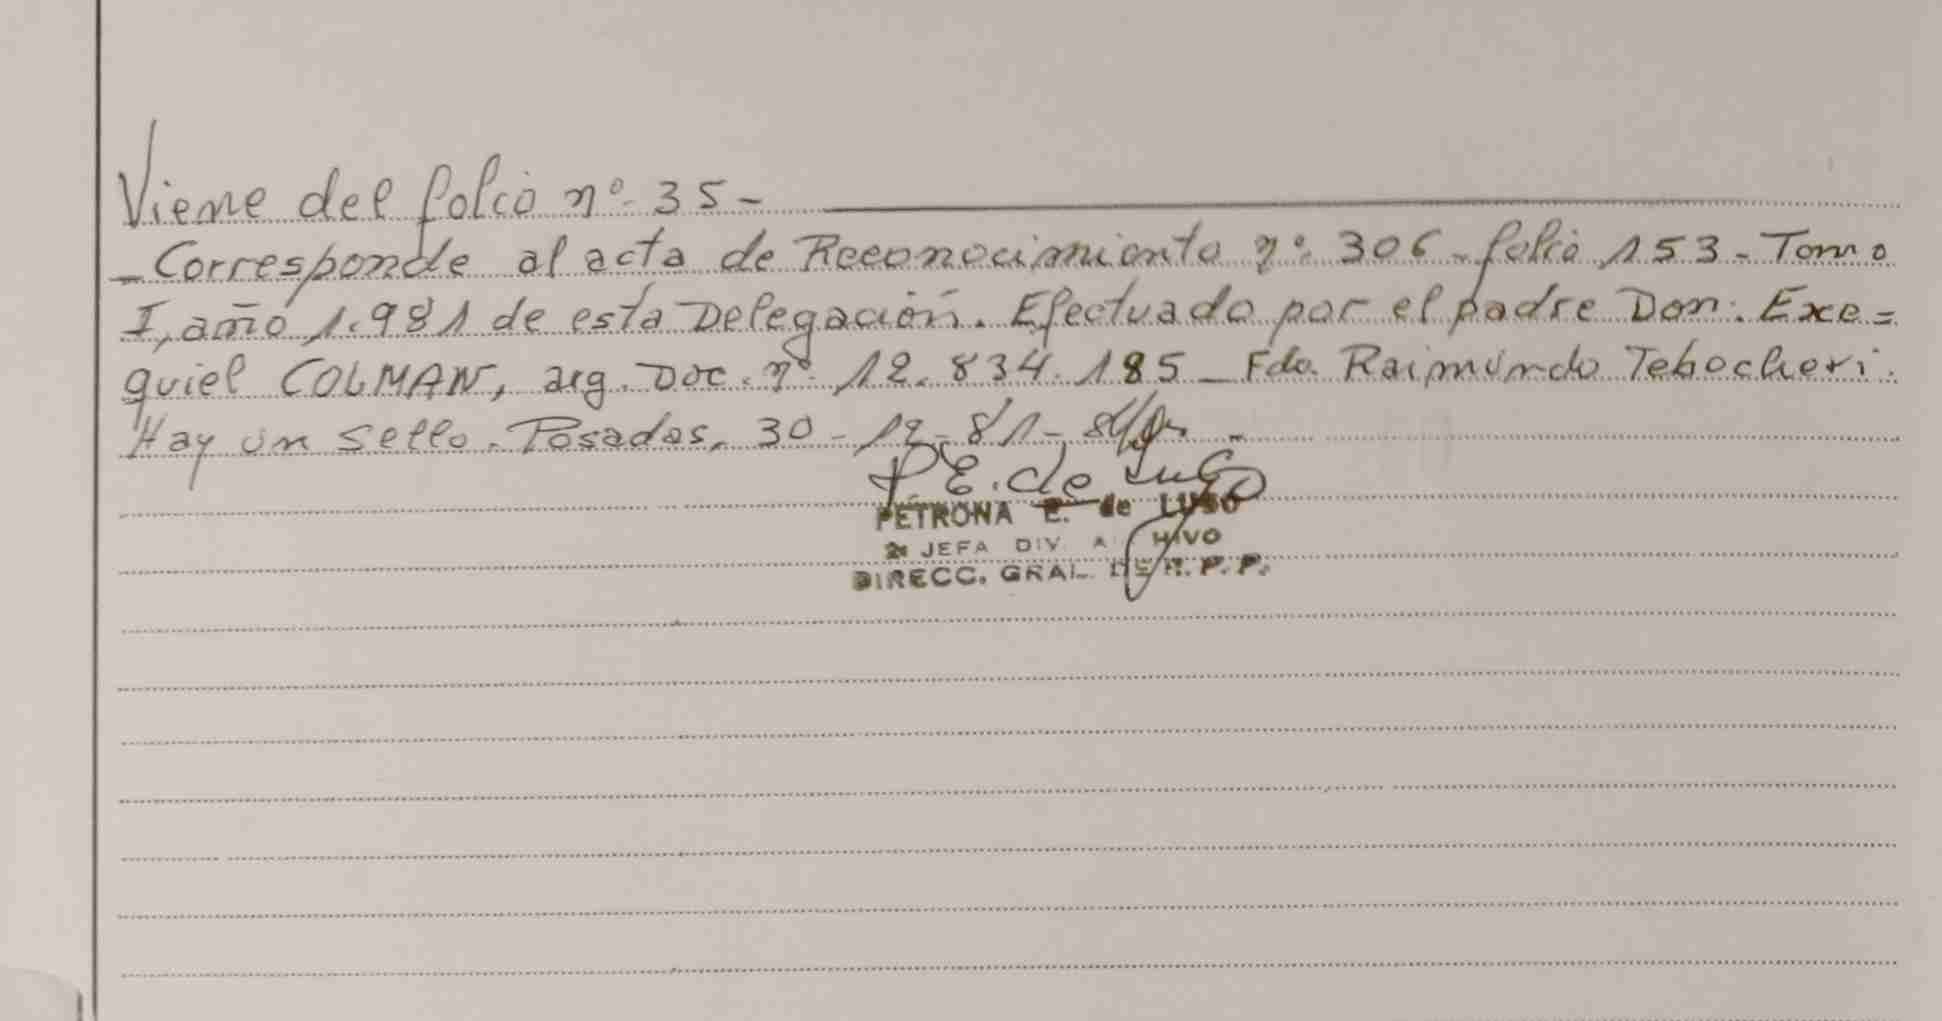 Viene del folio nº 35 -
- Corresponde al acta de Reconocimiento nº 306 - folio 153 - Tomo
I, año 1.981 de esta Delegación. Efectuado por el padre Don: Exe=
quiel COLMAN, arg. Doc. nº 12.834.185 - Fdo. Raimundo Tebocheri.
Hay un sello. Posadas, 30 - 12 - 81 -
P E. de Luso
PETRONA E. de LUSO
JEFA DIV. A HIVO
DIRECC. GRAL. DE R. P. P.